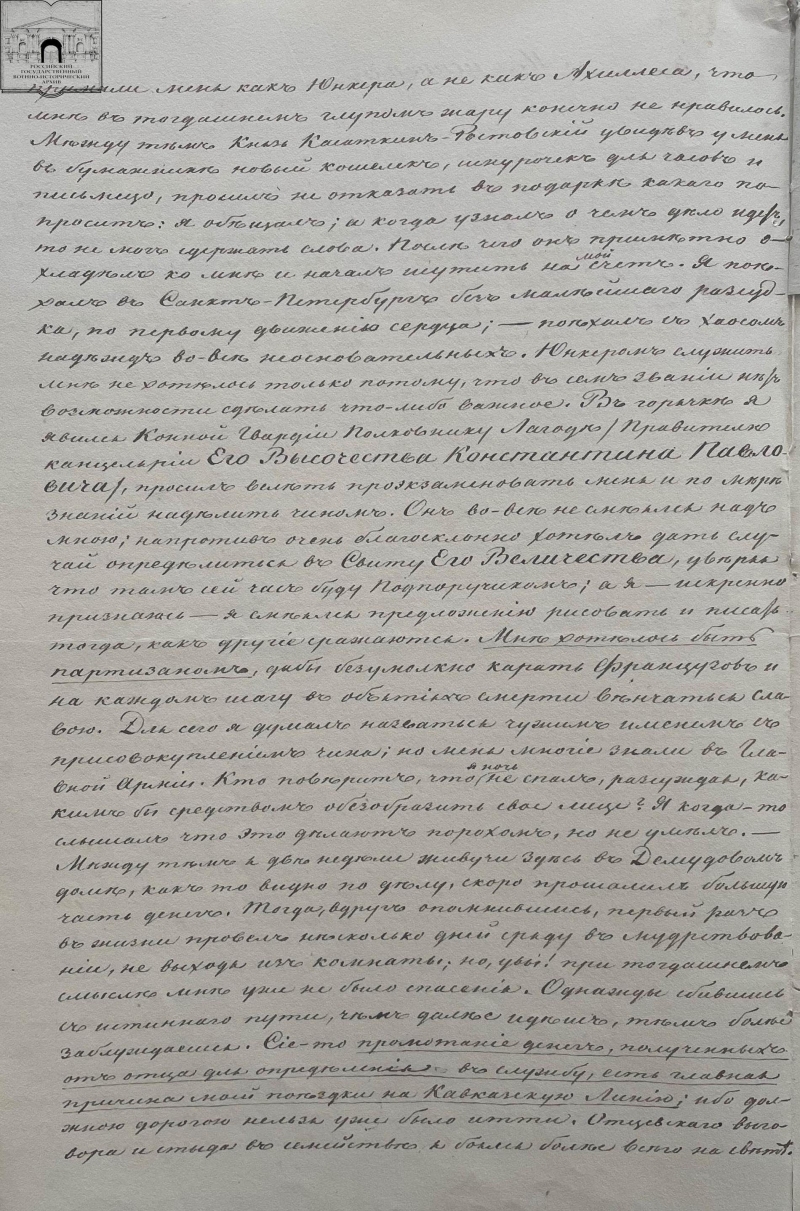 РОССИЙСКИЙ
ГОСУДАРСТВЕННЫЙ
ВОЕННО-ИСТОРИЧЕСКИЙ
АРХИВ
приняли меня какъ Юнкера, а не какъ Ахиллеса, что
мнѣ въ тогдашнемъ глупомъ жару конечно не нравилось.
Между тѣмъ Князь Касаткинъ-Ростовскій увидѣвъ у меня
въ бумажникѣ новый кошелекъ, шнурочекъ для часовъ и
письмецо, просилъ не отказать въ подаркѣ какаго по-
проситъ: я обѣщалъ; а когда узналъ о чемъ дѣло идетъ,
то не могъ сдержать слова. Послѣ чего онъ примѣтно о-
хладѣлъ ко мнѣ и началъ шутить на мой счетъ. Я поѣ-
халъ въ Санктъ-Петербургъ безъ малѣйшаго разсуд-
ка, по первому движенію сердца; — поѣхалъ съ хаосомъ
надѣждъ во-всѣ неосновательныхъ. Юнкеромъ служить
мнѣ не хотѣлось только потому, что въ семъ званіи нѣтъ
возможности сдѣлать что-либо важное. Въ горячкѣ я
явился Конной Гвардіи Полковнику Лагодѣ /Правителю
канцеляріи Его Высочества Константина Павло-
вича/, просилъ велѣть проэкзаменовать меня и по мѣрѣ
знаній надѣлить чиномъ. Онъ во-всѣ не смѣялся надъ
мною; напротивъ очень благосклонно хотѣлъ дать слу-
чай опредѣлиться въ Свиту Его Величества, увѣряя
что тамъ сей часъ буду Подпоручикомъ; а я — искренно
признаюсь — я смѣялся предложенію рисовать и писать
тогда, какъ другіе сражаются. Мнѣ хотѣлось быть
партизаномъ, дабы безумолкно карать Французовъ и
на каждомъ шагу въ объятіяхъ смерти вѣнчаться сла-
вою. Для сего я думалъ назваться чужимъ именемъ съ
присовокупленіемъ чина; но меня многіе знали въ Гла-
вной Арміи. Кто повѣритъ, что я ночь не спалъ, разсуждая, ка-
кимъ бы средствомъ обезобразить свое лице? Я когда-то
слышалъ что это дѣлаютъ порохомъ, но не умѣлъ. —
Между тѣмъ я двѣ недѣли живучи здѣсь въ Демудовомъ
домѣ, какъ то видно по дѣлу, скоро прошалилъ большую
часть денегъ. Тогда, вдругъ опомнившись, первый разъ
въ жизни провелъ нѣсколько дней сряду въ мудрствова-
ніи, не выходя изъ комнаты; но, увы! при тогдашнемъ
смыслѣ мнѣ уже не было спасенія. Однажды сбившись
съ истиннаго пути, чѣмъ далѣе идешь, тѣмъ болѣе
заблуждаешься. Сіе-то промотаніе денегъ, полученныхъ
отъ отца для опредѣленія въ службу, есть главная
причина моей поѣздки на Кавказскую Линію; ибо дол-
жною дорогою нельзя уже было итти. Отцевскаго выго-
вора и стыда въ семействѣ я боялся болѣе всего на свѣтѣ.